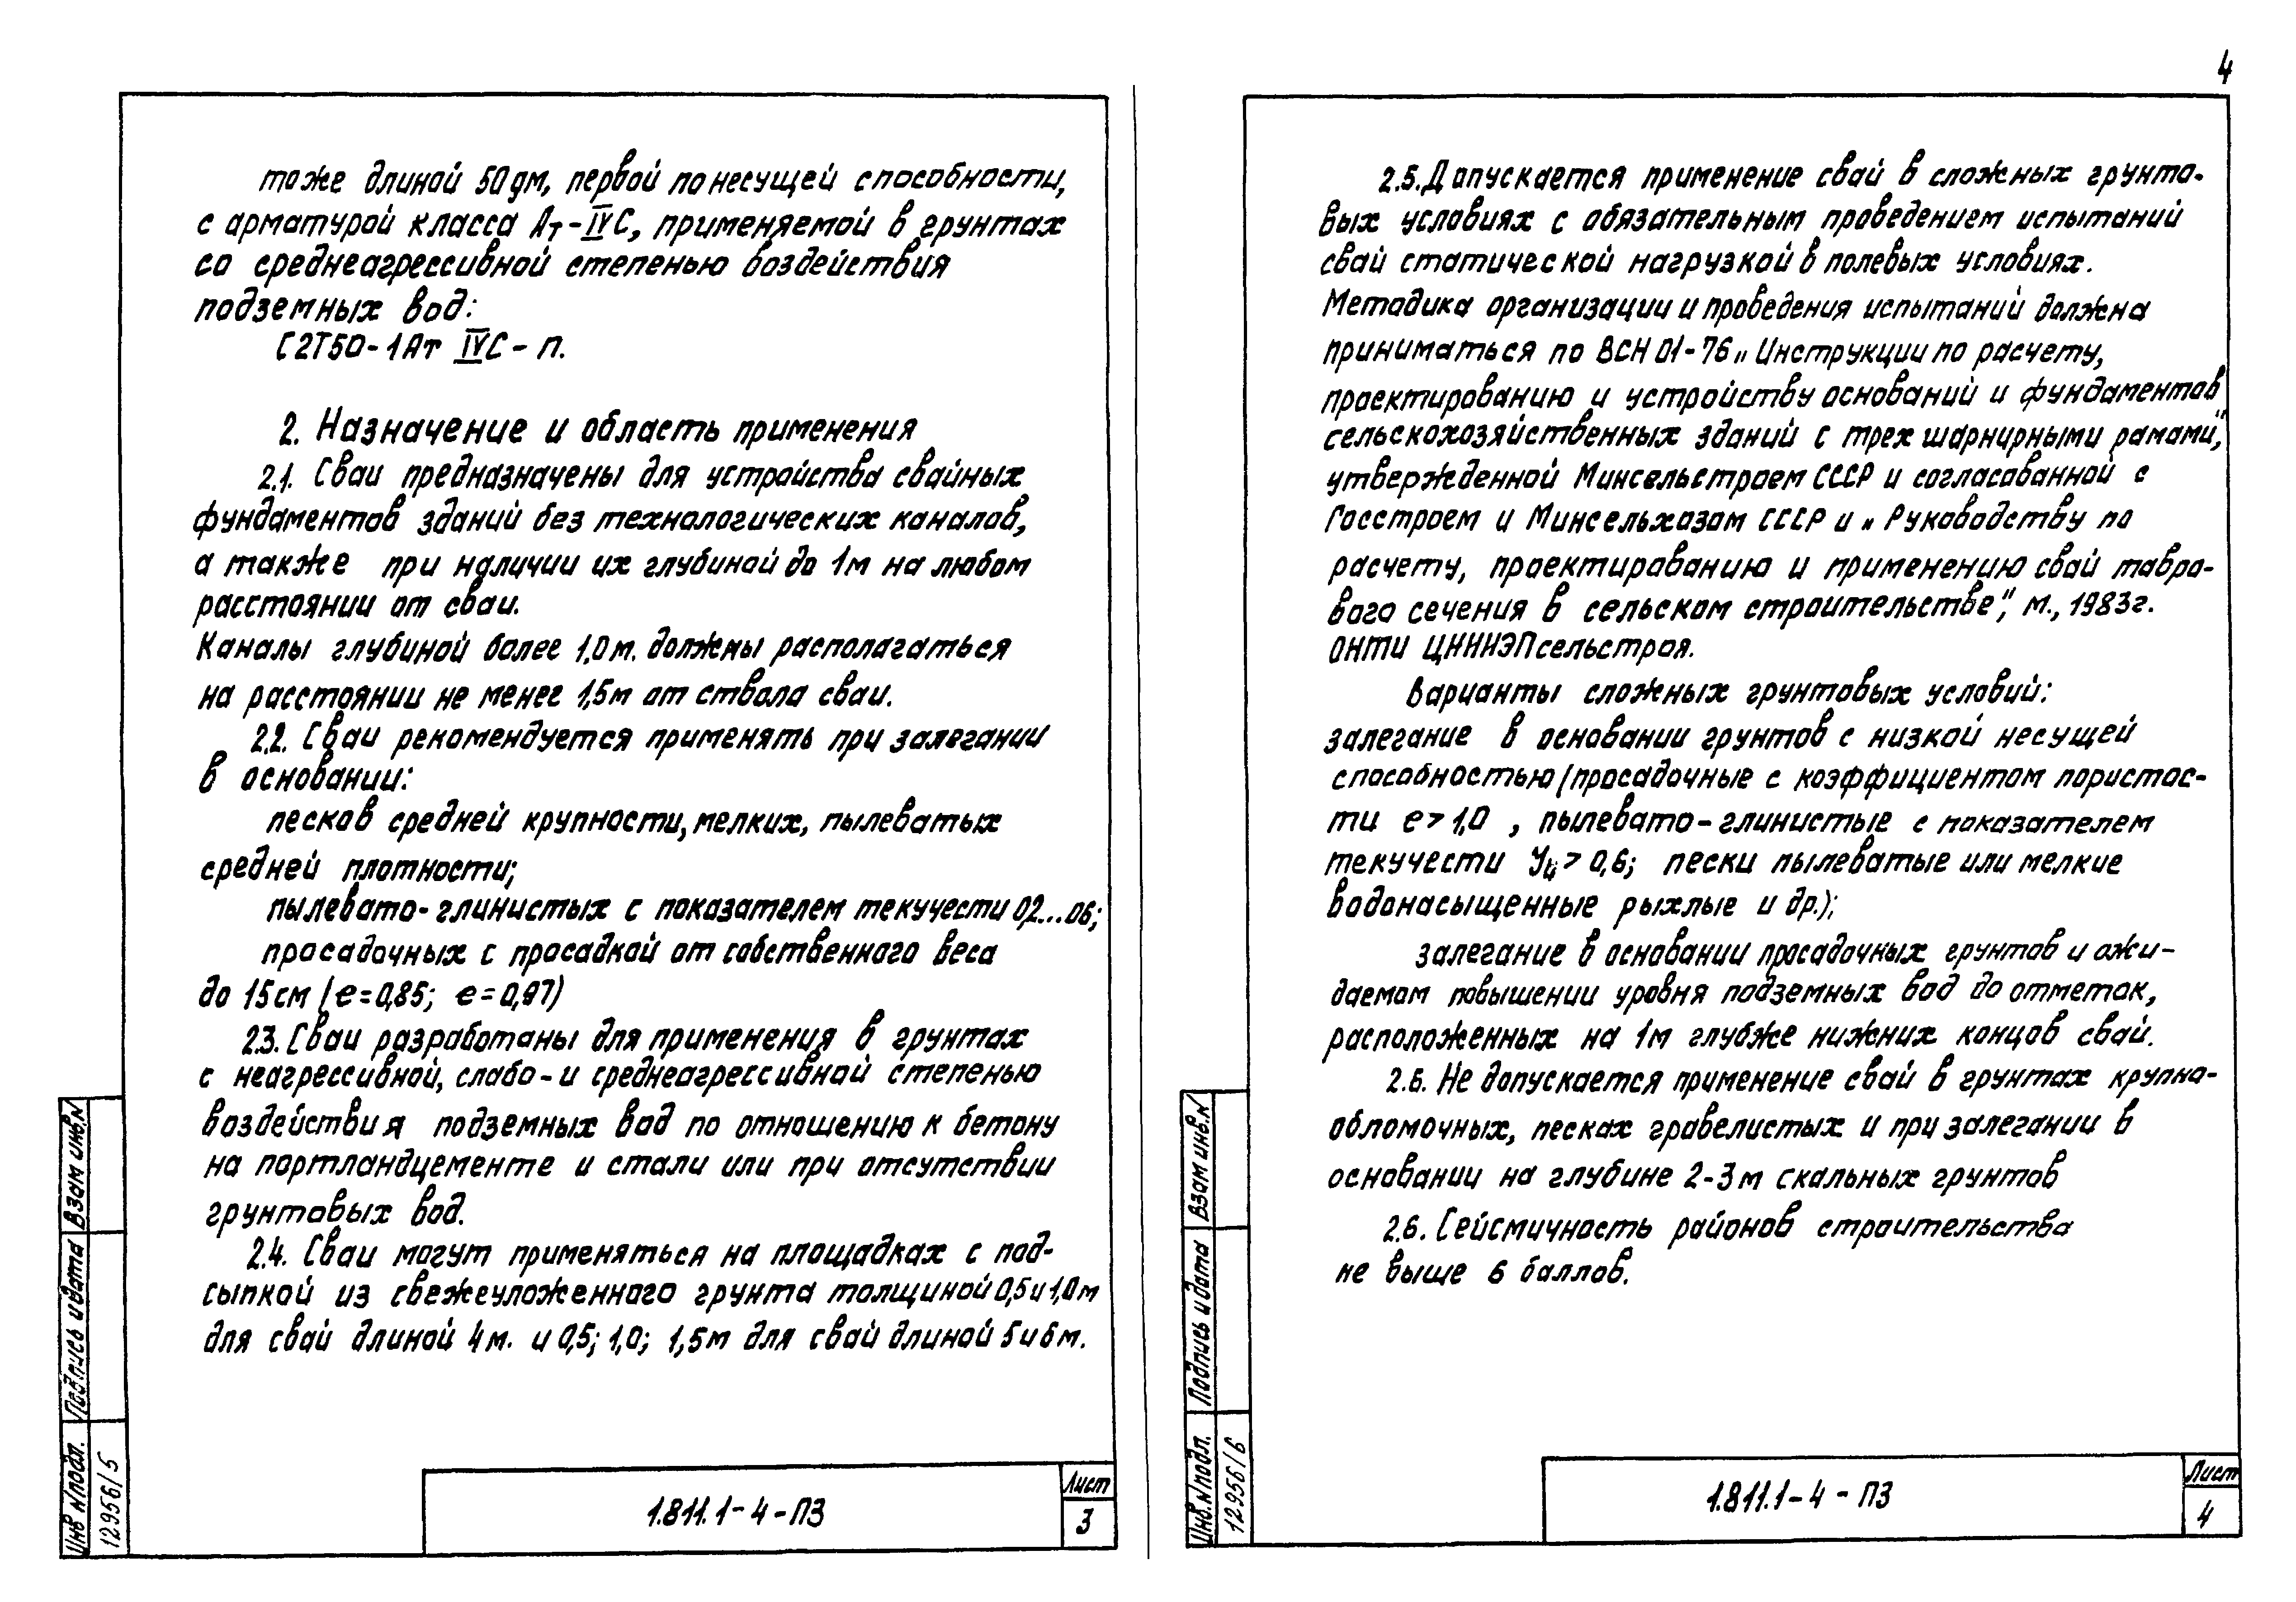 4
тоже длиной 50 дм, первой по несущей способности,
с арматурой класса Ат-IVС, применяемой в грунтах
со среднеагрессивной степенью воздействия
подземных вод:
С2Т50-1Ат IVС-П.
2. Назначение и область применения
2.1. Сваи предназначены для устройства свайных
фундаментов зданий без технологических каналов,
а также при наличии их глубиной до 1м на любом
расстоянии от сваи.
Каналы глубиной более 1,0м. должны располагаться
на расстоянии не менее 1,5м от ствола сваи.
2.2. Сваи рекомендуется применять при залегании
в основании:
песков средней крупности, мелких, пылеватых
средней плотности;
пылевато-глинистых с показателем текучести 0,2...0,6;
просадочных с просадкой от собственного веса
до 15 см (е=0,85; е=0,97)
2.3. Сваи разработаны для применения в грунтах
с неагрессивной, слабо- и среднеагрессивной степенью
воздействия подземных вод по отношению к бетону
на портландцементе и стали или при отсутствии
грунтовых вод.
2.4. Сваи могут применяться на площадках с под-
сыпкой из свежеуложенного грунта толщиной 0,5 и 1,0м
для свай длиной 4м. и 0,5; 1,0; 1,5м для свай длиной 5 и 6м.
Взам инв.N
Подпись и дата
Инв N подл.
12956/5
1.811.1-4-ПЗ
Лист
3
2.5. Допускается применение свай в сложных грунто-
вых условиях с обязательным проведением испытаний
свай статической нагрузкой в полевых условиях.
Методика организации и проведения испытаний должна
приниматься по ВСН 01-76 „Инструкции по расчету,
проектированию и устройству оснований и фундаментов
сельскохозяйственных зданий с трех шарнирными рамами",
утвержденной Минсельстроем СССР и согласованной с
Госстроем и Минсельхозом СССР и „Руководству по
расчету, проектированию и применению свай тавро-
вого сечения в сельском строительстве", М., 1983г.
ОНТИ ЦНИИЭПсельстроя.
Варианты сложных грунтовых условий:
залегание в основании грунтов с низкой несущей
способностью (просадочные с коэффициентом пористос-
ти е>1,0, пылевато-глинистые с показателем
текучести УL>0,6; пески пылеватые или мелкие
водонасыщенные рыхлые и др.);
залегание в основании просадочных грунтов и ожи-
даемом повышении уровня подземных вод до отметок,
расположенных на 1м глубже нижних концов свай.
2.6. Не допускается применение свай в грунтах крупно-
обломочных, песках гравелистых и при залегании в
основании на глубине 2-3м скальных грунтов
2.6. Сейсмичность районов строительства
не выше 6 баллов.
Взам инв.N
Подпись и дата
Инв. N подл.
12956/6
1.811.1-4-ПЗ
Лист
4